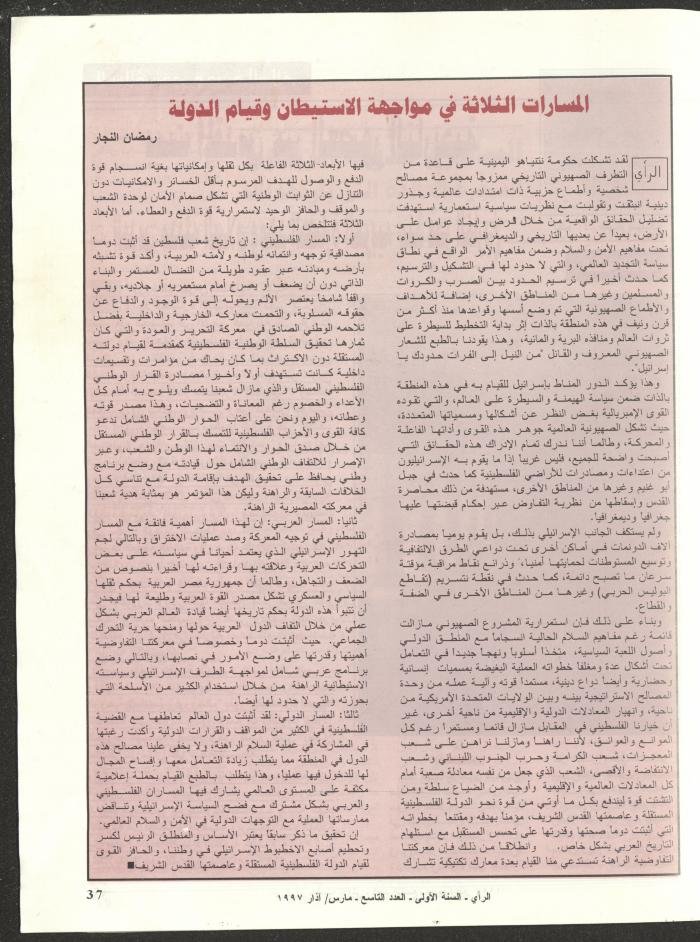 المسارات الثلاثة في مواجهة الاستيطان وقيام الدولة
رمضان النجار
الرأي
لقد تشكلت حكومة نتنياهو اليمينية على قاعدة من
التطرف الصهيوني التاريخي ممزوجا بمجموعة مصالح
شخصية وأطماع حزبية ذات امتدادات عالمية وجذور
دينية انبثقت وتقولبت مع نظريات سياسية استعمارية استهدفت
تضليل الحقائق الواقعية من خلال فرض وإيجاد عوامل على
الأرض، بعيداً عن بعديها التاريخي والديمغرافي على حد سواء،
تحت مفاهيم الأمن والسلام وضمن مفاهيم الأمر الواقع في نطاق
سياسة التجديد العالمي، والتي لا حدود لها في التشكيل والترسيم،
كما حدث أخيراً في ترسيم الحدود بين الصرب والكروات
والمسلمين وغيرها من المناطق الأخرى، إضافة للأهداف
والأطماع الصهيونية التي تم وضع أسسها وقواعدها منذ أكثر من
قرن ونيف في هذه المنطقة بالذات إثر بداية التخطيط للسيطرة على
ثروات العالم ومنافذه البرية والمائية، وهذا يقودنا بالطبع للشعار
الصهيوني المعروف والقائل "من النيل إلى الفرات حدودك يا
إسرائيل".
وهذا يؤكد الدور المناط بإسرائيل للقيام به في هذه المنطقة
بالذات ضمن سياسة الهيمنة والسيطرة على العالم، والتي تقوده
القوى الإمبريالية بغض النظر عن أشكالها ومسمياتها المتعددة،
حيث تشكل الصهيونية العالمية جوهر هذه القوى وأداتها الفاعلة
والمحركة، وطالما أننا ندرك تمام الإدراك هذه الحقائق التي
أصبحت واضحة للجميع، فليس غريباً إذا ما يقوم به الإسرائيليون
من اعتداءات ومصادرات للأراضي الفلسطينية كما حدث في جبل
أبو غنيم وغيرها من المناطق الأخرى، مستهدفة من ذلك محاصرة
القدس وإسقاطها من نظرية التفاوض عبر إحكام قبضتها عليها
جغرافياً وديمغرافياً.
ولم يستكف الجانب الإسرائيلي بذلك، بل يقوم يوميا بمصادرة
آلاف الدونمات في أماكن أخرى تحت دواعي الطرق الالتفافية
وتوسيع المستوطنات لحمايتها أمنيا، وذرائع نقاط مراقبة مؤقتة
سرعان ما تصبح دائمة، كما حدث في نقطة نتسريم (تقاطع
البوليس الحربي) وغيرها من المناطق الأخرى في الضفة
والقطاع.
وبناء على ذلك فإن استمرارية المشروع الصهيوني مازالت
قائمة رغم مفاهيم السلام الحالية انسجاما مع المنطق الدولي
وأصول اللعبة السياسية، متخذاً أسلوبا ونهجاً جديداً في التعامل
تحت أشكال عدة ومغلفا خطواته العملية البغيضة بمسميات إنسانية
وحضارية وأيضا دواع دينية، مستمدا قوته وآلية عمله من وحدة
المصالح الاستراتيجية بينه وبين الولايات المتحدة الأمريكية من
ناحية، وانهيار المعادلات الدولية والإقليمية من ناحية أخرى، غير
أن خيارنا الفلسطيني في المقابل مازال قائما ومستمراً رغم كل
الموانع والعوائق، لأننا راهنا ومازلنا نراهن على شعب
المعجزات، شعب الكرامة وحرب الجنوب اللبناني وشعب
الانتفاضة والأقصى، الشعب الذي جعل من نفسه معادلة صعبة أمام
كل المعادلات العالمية والإقليمية وأوجد من الضياع سلطة ومن
التشتت قوة ليندفع بكل ما أوتي من قوة نحو الدولة الفلسطينية
المستقلة وعاصمتها القدس الشريف، مؤمنا بهدفه ومقتنعا بخطواته
التي أثبتت دوما صحتها وقدرتها على تحسس المستقبل مع استلهام
التاريخ العربي بشكل خاص. وانطلاقا من ذلك فإن معركتنا
التفاوضية الراهنة تستدعي منا القيام بعدة معارك تكتيكية تشارك
فيها الأبعاد الثلاثة الفاعلة بكل ثقلها وإمكانياتها بغية انسجام قوة
الدفع والوصول للهدف المرسوم بأقل الخسائر والامكانيات دون
التنازل عن الثوابت الوطنية التي تشكل صمام الأمان لوحدة الشعب
والموقف والحافز الوحيد لاستمرارية قوة الدفع والعطاء. أما الأبعاد
الثلاثة فتتلخص بما يلي:
أولا: المسار الفلسطيني: إن تاريخ شعب فلسطين قد أثبت دوما
مصداقية توجهه وانتمائه لوطنه ولأمته العربية، وأكد قوة تشبثه
بأرضه ومبادئه عبر عقود طويلة من النضال المستمر والبناء
الذاتي دون أن يضعف أو يصرخ أمام مستعمريه أو جلاديه، وبقي
واقفا شامخا يعتصر الألم ويحوله إلى قوة الوجود والدفاع عن
حقوقه المسلوبة، والتحمت معاركه الخارجية والداخلية بفضل
تلاحمه الوطني الصادق في معركة التحرير والعودة والتي كان
ثمارها تحقيق السلطة الوطنية الفلسطينية كمقدمة لقيام دولته
المستقلة دون الاكتراث بما كان يحاك من مؤامرات وتقسيمات
داخلية كانت تستهدف أولا وأخيراً مصادرة القرار الوطني
الفلسطيني المستقل والذي مازال شعبنا يتمسك ويلوح به أمام كل
الأعداء والخصوم رغم المعاناة والتضحيات، وهذا مصدر قوته
وعطائه، واليوم ونحن على أعتاب الحوار الوطني الشامل ندعو
كافة القوى والأحزاب الفلسطينية للتمسك بالقرار الوطني المستقل
من خلال صدق الحوار والانتماء لهذا الوطن والشعب، وعبر
الإصرار للالتفاف الوطني الشامل حول قيادته مع وضع برنامج
وطني يحافظ على تحقيق الهدف بإقامة الدولة مع تناسي كل
الخلافات السابقة والراهنة وليكن هذا المؤتمر هو بمثابة هدية شعبنا
في معركته المصيرية الراهنة.
ثانيا: المسار العربي: إن لهذا المسار أهمية فائقة مع المسار
الفلسطيني في توجيه المعركة وصد عمليات الاختراق وبالتالي لجم
التهور الإسرائيلي الذي يعتمد أحيانا في سياسته على بعض
التحركات العربية وعلاقته بها وقراءته لها أخيرا بنصوص من
الضعف والتجاهل، وطالما أن جمهورية مصر العربية بحكم ثقلها
السياسي والعسكري تشكل مصدر القوة العربية وطليعة لها فيجدر
أن تتبوأ هذه الدولة بحكم تاريخها أيضا قيادة العالم العربي بشكل
عملي من خلال التفاف الدول العربية حولها ومنحها حرية التحرك
الجماعي. حيث أثبتت دوما وخصوصا في معركتنا التفاوضية
أهميتها وقدرتها على وضع الأمور في نصابها، وبالتالي وضع
برنامج عربي شامل لمواجهة الطرف الإسرائيلي وسياسته
الاستيطانية الراهنة من خلال استخدام الكثير من الأسلحة التي
بحوزته والتي لا حدود لها أيضاً.
ثالثا: المسار الدولي: لقد أثبتت دول العالم تعاطفها مع القضية
الفلسطينية في الكثير من المواقف والقرارات الدولية وأكدت رغبتها
في المشاركة في عملية السلام الراهنة، ولا يخفى علينا مصالح هذه
الدول في المنطقة مما يتطلب زيادة التعامل معها وإفساح المجال
لها للدخول فيها عمليا، وهذا يتطلب بالطبع القيام بحملة إعلامية
مكثفة على المستوى العالمي يشارك فيها المساران الفلسطيني
والعربي بشكل مشترك مع فضح السياسة الإسرائيلية وتناقض
ممارساتها العملية مع التوجهات الدولية في الأمن والسلام العالمي.
إن تحقيق ما ذكر سابقاً يعتبر الأساس والمنطلق الرئيس لكسر
وتحطيم أصابع الاخطبوط الإسرائيلي في وطننا، والحافز القوي
لقيام الدولة الفلسطينية المستقلة وعاصمتها القدس الشريف■
الرأي - السنة الأولى - العدد التاسع - مارس/ آذار ١٩٩٧
37